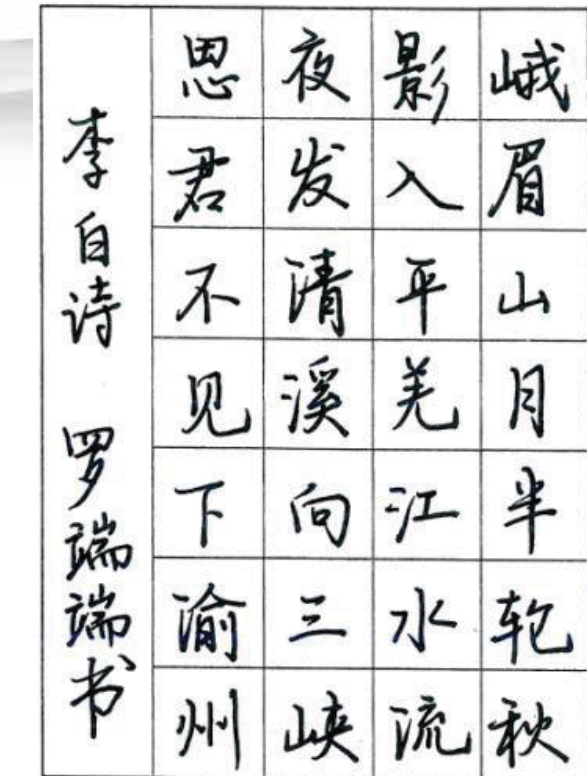 峨眉山月半轮秋
影入平羌江水流
夜发清溪向三峡
思君不见下渝州
李白诗 罗端端书